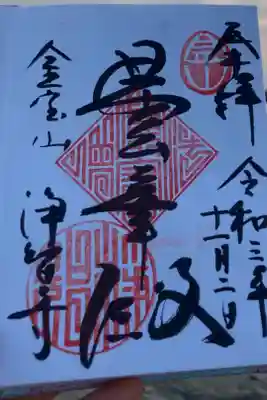 奉拝
令和三年
十一月二日
曇華殿
金宝山
浄智寺